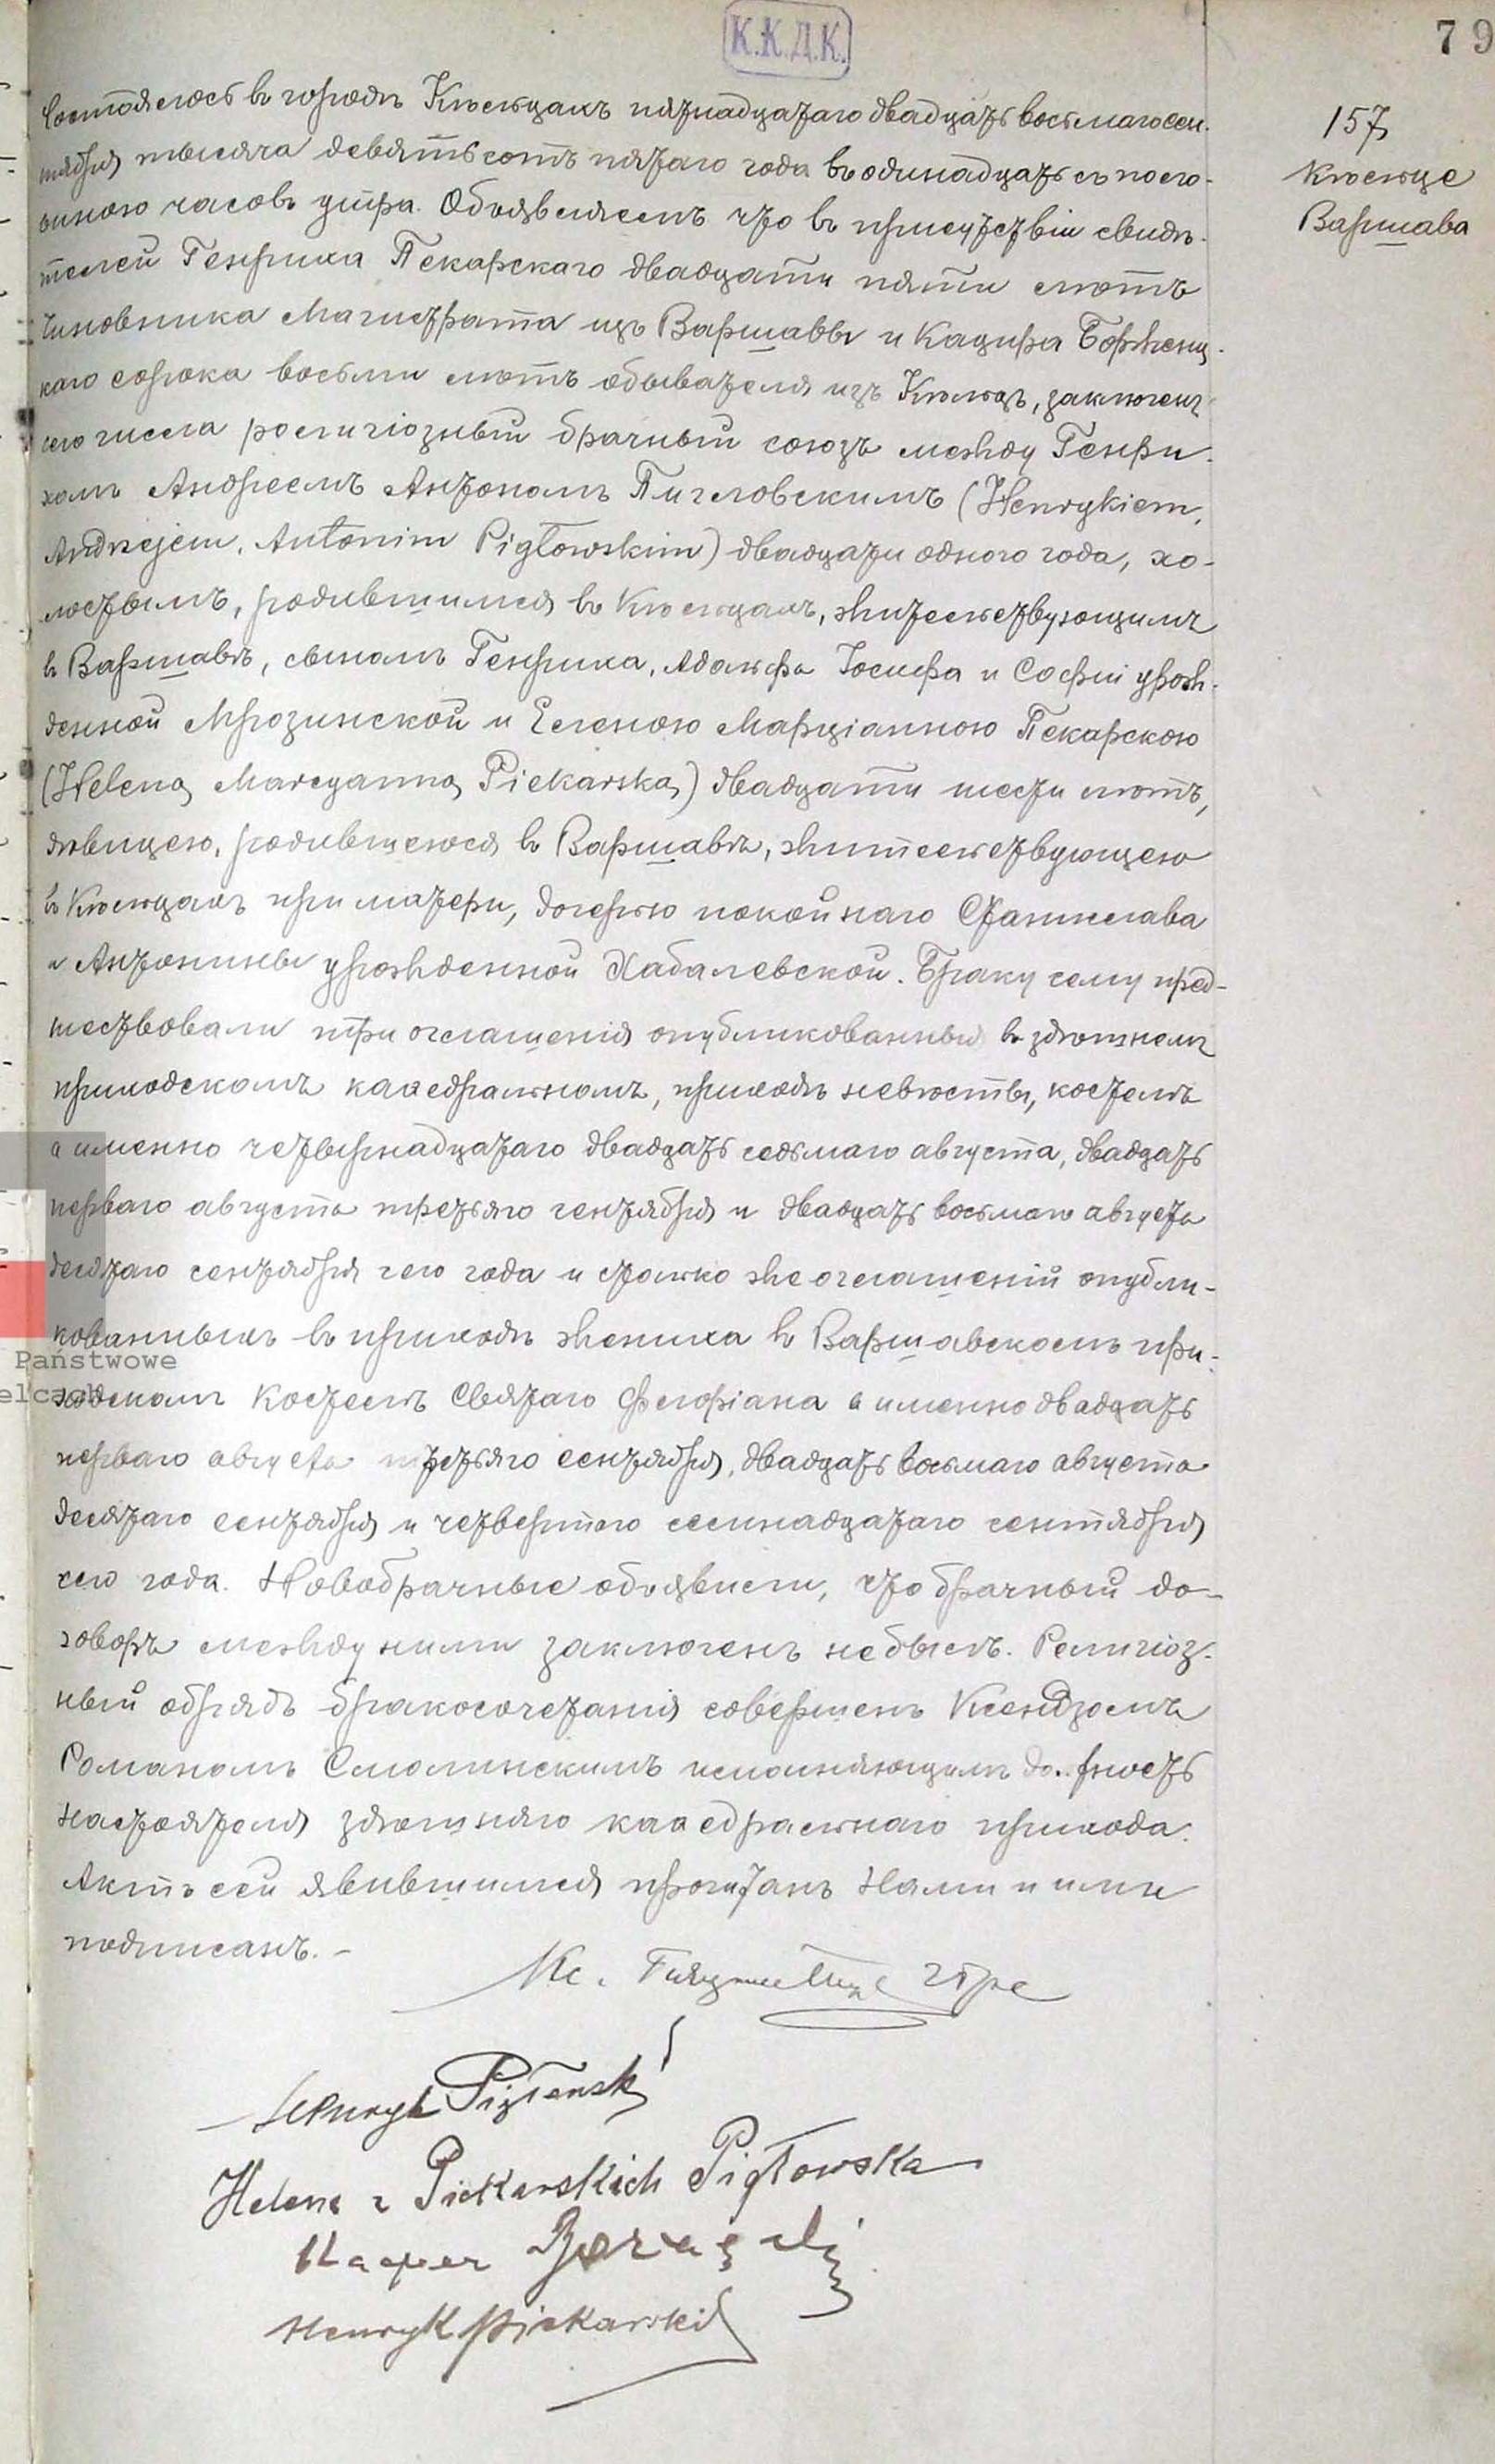 К.К.Д.К.
79
157
Кѣльце
Варшава
Состоялось въ городѣ Кѣльцахъ пятнадцатаго двадцать восьмаго сен-
тября тысяча девятьсотъ пятаго года въ одинадцать съ поло-
виною часовъ утра. Объявляемъ что въ присутствіи свидѣ-
телей Генриха Пекарскаго двадцати пяти лѣтъ
чиновника Магистрата изъ Варшавы и Кацпра Борженц-
каго сорока восьми лѣтъ обывателя изъ Кѣльцъ, заключенъ
сего числа религіозный брачный союзъ между Генри-
хомъ Андреемъ Антономъ Пигловскимъ (Henrykiem,
Andrzejem, Antonim Pigłowskim) двадцати одного года, хо-
лостымъ, родившимся въ Кѣльцахъ, жительствующимъ
въ Варшавѣ, сыномъ Генриха, Адольфа Іосифа и Софіи урож-
денной Мрозинской и Еленою Марціанною Пекарскою
(Heleną Marcyanną Piekarską) двадцати шести лѣтъ,
дѣвицею, родившеюся въ Варшавѣ, жительствующею
въ Кѣльцахъ при матери, дочерью покойнаго Станислава
и Антонины урожденной Хабалевской. Браку сему пред-
шествовали три оглашенія опубликованныя въ здѣшнемъ
приходскомъ каѳедральномъ, приходѣ невѣсты, костелѣ
а именно четырнадцатаго двадцать седьмаго августа, двадцать
перваго августа третьяго сентября и двадцать восьмаго августа
десятаго сентября сего года и столько же оглашеній опубли-
кованныхъ въ приходѣ жениха въ Варшавскомъ при-
ходскомъ костелѣ Святаго Флоріана а именно двадцать
перваго августа третьяго сентября, двадцать восьмаго августа
десятаго сентября и четвертаго семнадцатаго сентября
сего года. Новобрачные объявили, что брачный до-
говоръ между ними заключенъ не былъ. Религіоз-
ный обрядъ бракосочетанія совершенъ Ксендзомъ
Романомъ Смолинскимъ исполняющимъ должность
настоятеля здѣшняго каѳедральнаго прихода.
Актъ сей явившимся прочитанъ Нами и ими
подписанъ. -
Кс.
Henryk Pigłowski
Helena z Piekarskich Pigłowska
Kacper
Henryk Piekarski
Państwowe
elcach